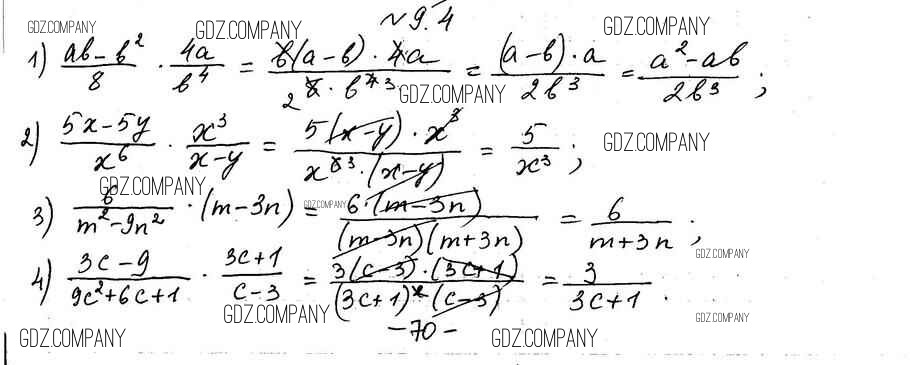 № 9.4
GDZ.COMPANY GDZ.COMPANY GDZ.COMPANY
1) (ab - b²)/8 · 4a/b⁴ = (b(a - b) · 4a)/(8 · b⁴) = ((a - b) · a)/(2b³) = (a² - ab)/(2b³);
GDZ.COMPANY
2) (5x - 5y)/x⁶ · x³/(x - y) = (5(x - y) · x³)/(x⁶ · (x - y)) = 5/x³;
GDZ.COMPANY
GDZ.COMPANY
3) 6/(m² - 9n²) · (m - 3n) = (6 · (m - 3n))/((m - 3n)(m + 3n)) = 6/(m + 3n);
GDZ.COMPANY
GDZ.COMPANY
4) (3c - 9)/(9c² + 6c + 1) · (3c + 1)/(c - 3) = (3(c - 3) · (3c + 1))/((3c + 1)² · (c - 3)) = 3/(3c + 1).
GDZ.COMPANY GDZ.COMPANY
- 70 -
GDZ.COMPANY GDZ.COMPANY GDZ.COMPANY